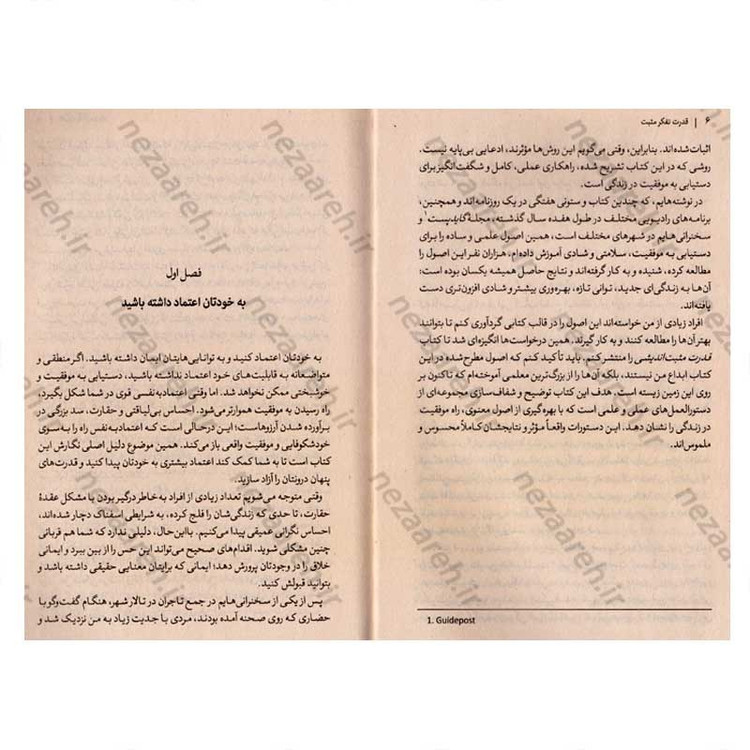 ۶ | قدرت تفکر مثبت
اثبات شده‌اند. بنابراین، وقتی می‌گویم این روش‌ها مؤثرند، ادعایی بی‌پایه نیست.
روشی که در این کتاب تشریح شده، راهکاری عملی، کامل و شگفت‌انگیز برای
دستیابی به موفقیت در زندگی است.
در نوشته‌هایم، که چندین کتاب و ستونی هفتگی در یک روزنامه‌اند و همچنین،
برنامه‌های رادیویی مختلف در طول هفده سال گذشته، مجلهٔ گایدپست¹ و
سخنرانی‌هایم در شهرهای مختلف است، همین اصول علمی و ساده را برای
دستیابی به موفقیت، سلامتی و شادی آموزش داده‌ام. هزاران نفر این اصول را
مطالعه کرده، شنیده و به کار گرفته‌اند و نتایج حاصل همیشه یکسان بوده است:
آن‌ها به زندگی‌ای جدید، توانی تازه، بهره‌وری بیشتر و شادی افزون‌تری دست
یافته‌اند.
افراد زیادی از من خواسته‌اند این اصول را در قالب کتابی گردآوری کنم تا بتوانند
بهتر آن‌ها را مطالعه کنند و به کار گیرند. همین درخواست‌ها انگیزه‌ای شد تا کتاب
قدرت مثبت‌اندیشی را منتشر کنم. باید تأکید کنم که اصول مطرح شده در این
کتاب ابداع من نیستند، بلکه آن‌ها را از بزرگ‌ترین معلمی آموخته‌ام که تاکنون بر
روی این زمین زیسته است. هدف این کتاب توضیح و شفاف‌سازی مجموعه‌ای از
دستورالعمل‌های عملی و علمی است که با بهره‌گیری از اصول معنوی، راه موفقیت
در زندگی را نشان دهد. این دستورات واقعاً مؤثر و نتایجشان کاملاً محسوس و
ملموس‌اند.
1. Guidepost
فصل اول
به خودتان اعتماد داشته باشید
به خودتان اعتماد کنید و به توانایی‌هایتان ایمان داشته باشید. اگر منطقی و
متواضعانه به قابلیت‌های خود اعتماد نداشته باشید، دستیابی به موفقیت و
خوشبختی ممکن نخواهد شد. اما وقتی اعتمادبه‌نفسی قوی در شما شکل بگیرد،
راه رسیدن به موفقیت هموارتر می‌شود. احساس بی‌لیاقتی و حقارت، سد بزرگی در
برآورده شدن آرزوهاست؛ این درحالی است که اعتمادبه‌نفس راه را به سوی
خودشکوفایی و موفقیت واقعی باز می‌کند. همین موضوع دلیل اصلی نگارش این
کتاب است تا به شما کمک کند اعتماد بیشتری به خودتان پیدا کنید و قدرت‌های
پنهان درونتان را آزاد سازید.
وقتی متوجه می‌شویم تعداد زیادی از افراد به خاطر درگیر بودن با مشکل عقدهٔ
حقارت، تا حدی که زندگی‌شان را فلج کرده، به شرایطی اسفناک دچار شده‌اند،
احساس نگرانی عمیقی پیدا می‌کنیم. بااین‌حال، دلیلی ندارد که شما هم قربانی
چنین مشکلی شوید. اقدام‌های صحیح می‌تواند این حس را از بین ببرد و ایمانی
خلاق را در وجودتان پرورش دهد؛ ایمانی که برایتان معنایی حقیقی داشته باشد و
بتوانید قبولش کنید.
پس از یکی از سخنرانی‌هایم در جمع تاجران در تالار شهر، هنگام گفت‌وگو با
حضاری که روی صحنه آمده بودند، مردی با جدیت زیاد به من نزدیک شد و
nezaareh.ir